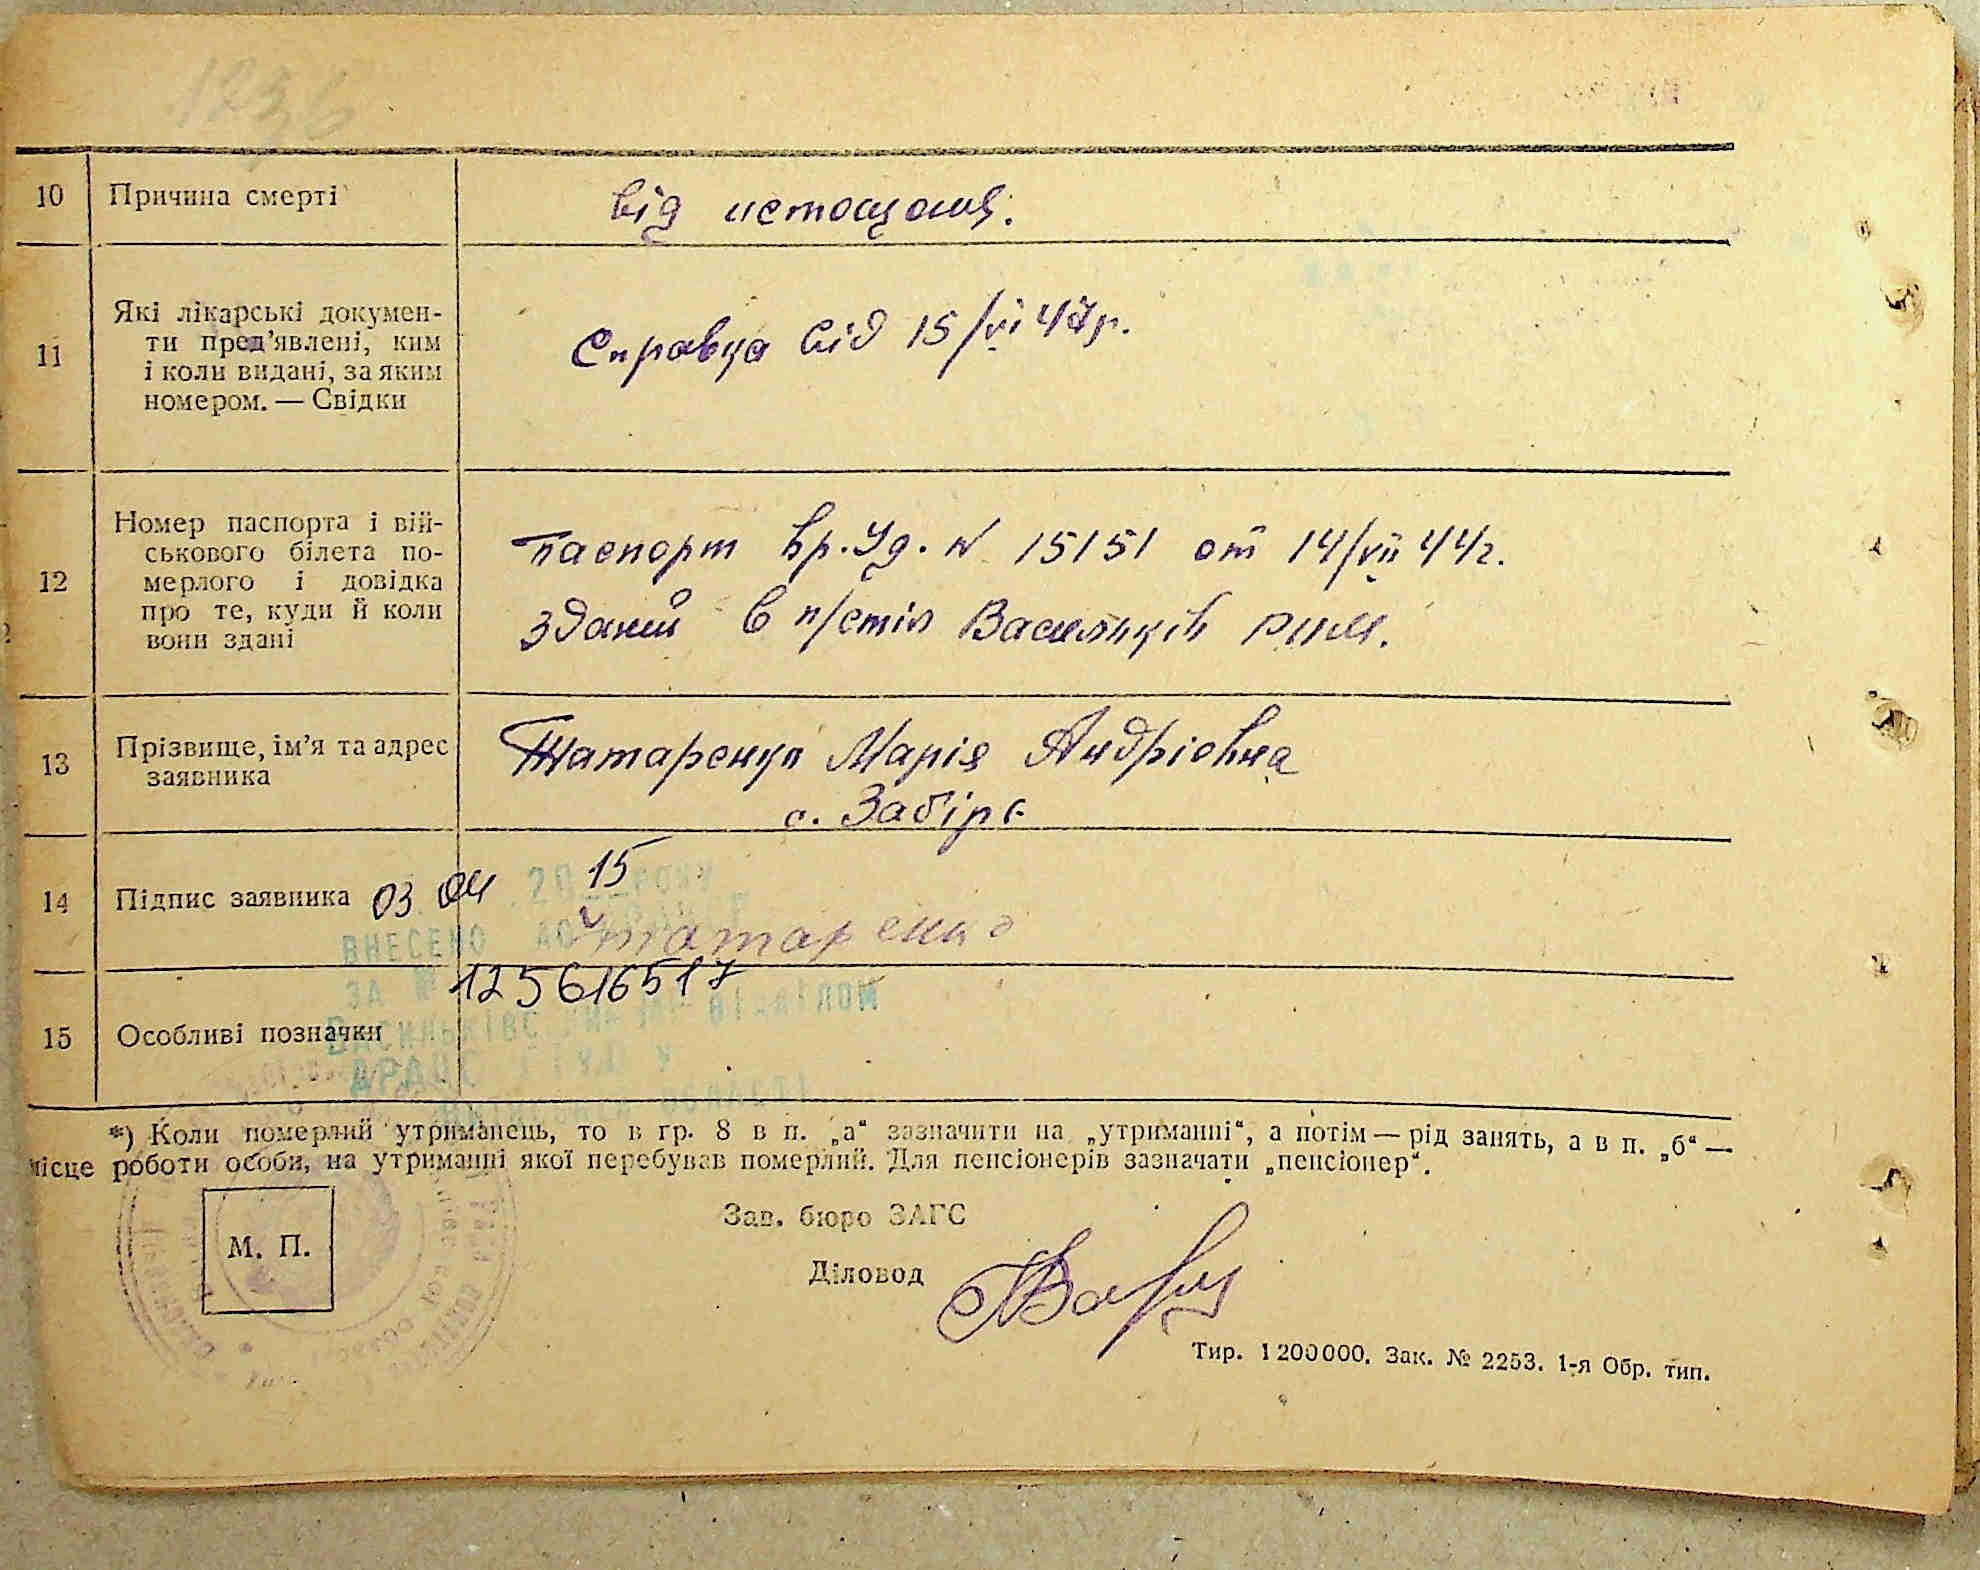 1236
10 Причина смерті від истощания.
11 Які лікарські докумен-
ти пред'явлені, ким
і коли видані, за яким
номером. — Свідки
Справка від 15/VI 47р.
12 Номер паспорта і вій-
ськового білета по-
мерлого і довідка
про те, куди й коли
вони здані
паспорт вр. уд. № 15151 от 14/VII 44г.
зданий в п/стіл Васильків РММ.
13 Прізвище, ім'я та адрес
заявника
Татаренко Марія Андрієвна
с. Забірє
14 Підпис заявника 03 04 20 15 року
ВНЕСЕНО ДО
Татаренко
ЗА № 125616517
ВАСИЛЬКІВС ВІДДІЛОМ
15 Особливі позначки
ДРАЦС ГТУЮ У
КИЇВСЬКІЙ ОБЛАСТІ
*) Коли померлий утриманець, то в гр. 8 в п. „а“ зазначити на „утриманні“, а потім — рід занять, а в п. „б“ —
місце роботи особи, на утриманні якої перебував померлий. Для пенсіонерів зазначати „пенсіонер“.
Зав. бюро ЗАГС
М. П.
Діловод
Тир. 1200000. Зак. № 2253. 1-я Обр. тип.